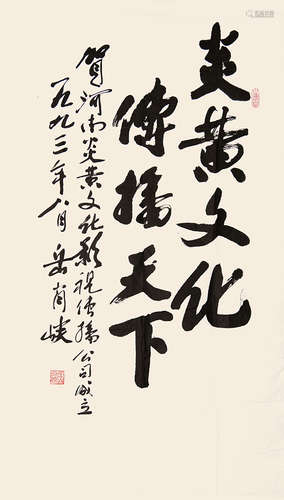 炎黄文化
傳播天下
贺河南炎黄文化影視傳播公司成立
一九九三年八月 岳肖峡